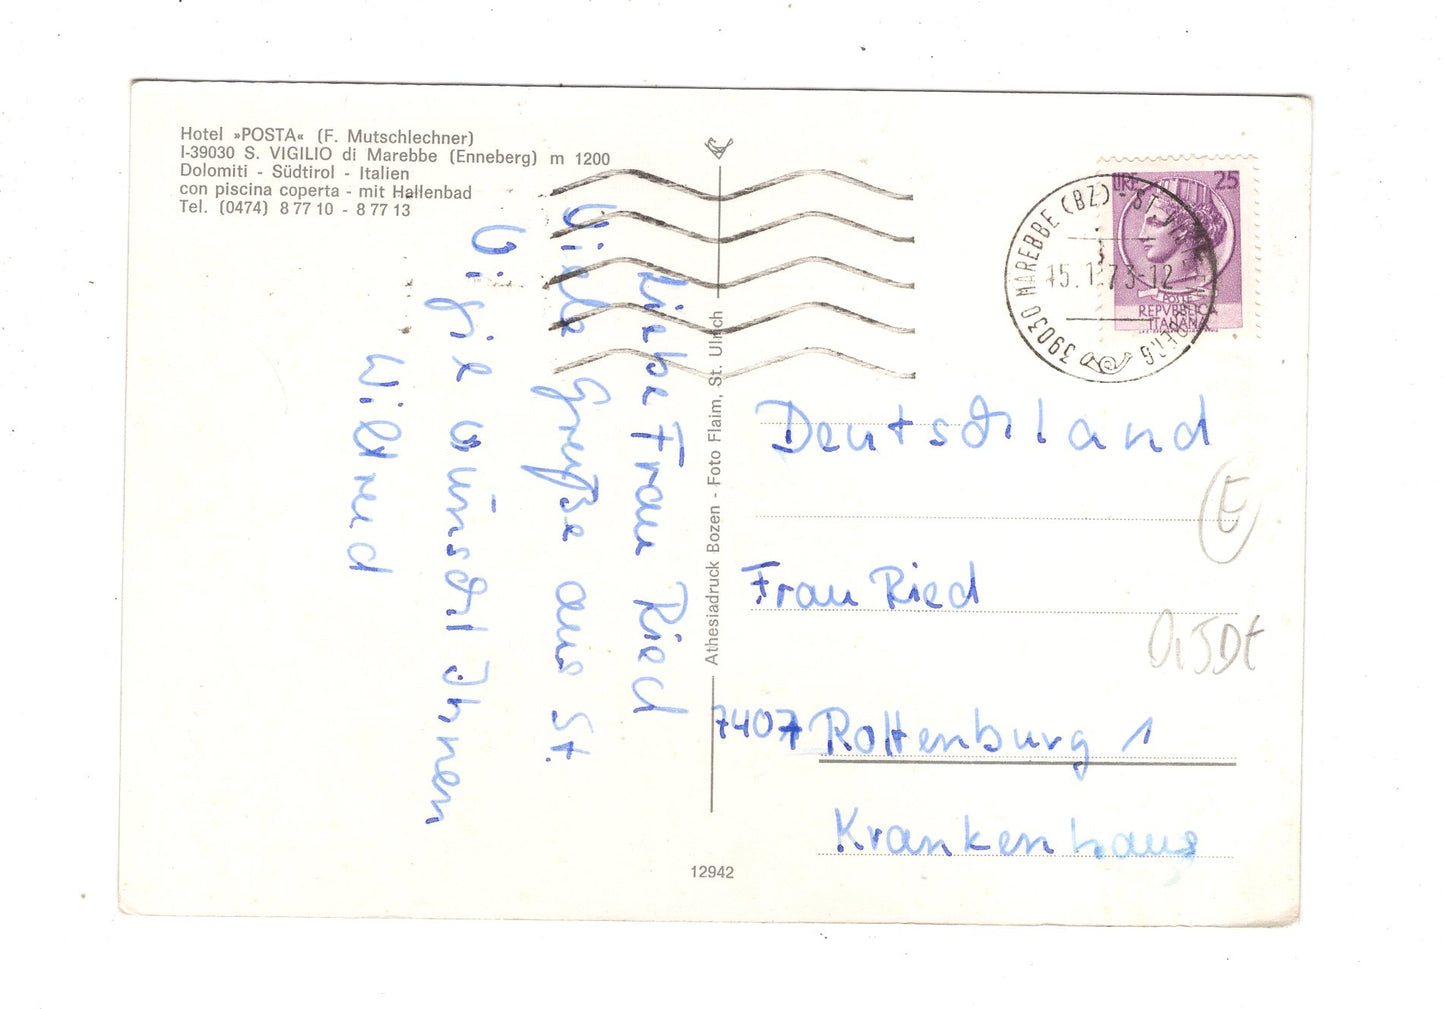 Hotel »POSTA« (F. Mutschlechner)
I-39030 S. VIGILIO di Marebbe (Enneberg) m 1200
Dolomiti - Südtirol - Italien
con piscina coperta - mit Hallenbad
Tel. (0474) 8 77 10 - 8 77 13
Liebe Frau Ried
Viele Grüße aus St.
Vigil wünscht Ihnen
Wiltrud
Athesiadruck Bozen - Foto Flaim, St. Ulrich
12942
LIRE 25
POSTE
REPVBBLICA
ITALIANA
39030 MAREBBE (BZ) - ST. VIGIL ENNEBERG
15.1.73-12
Deutschland
E
Frau Ried
7407 Rottenburg 1
Krankenhaus